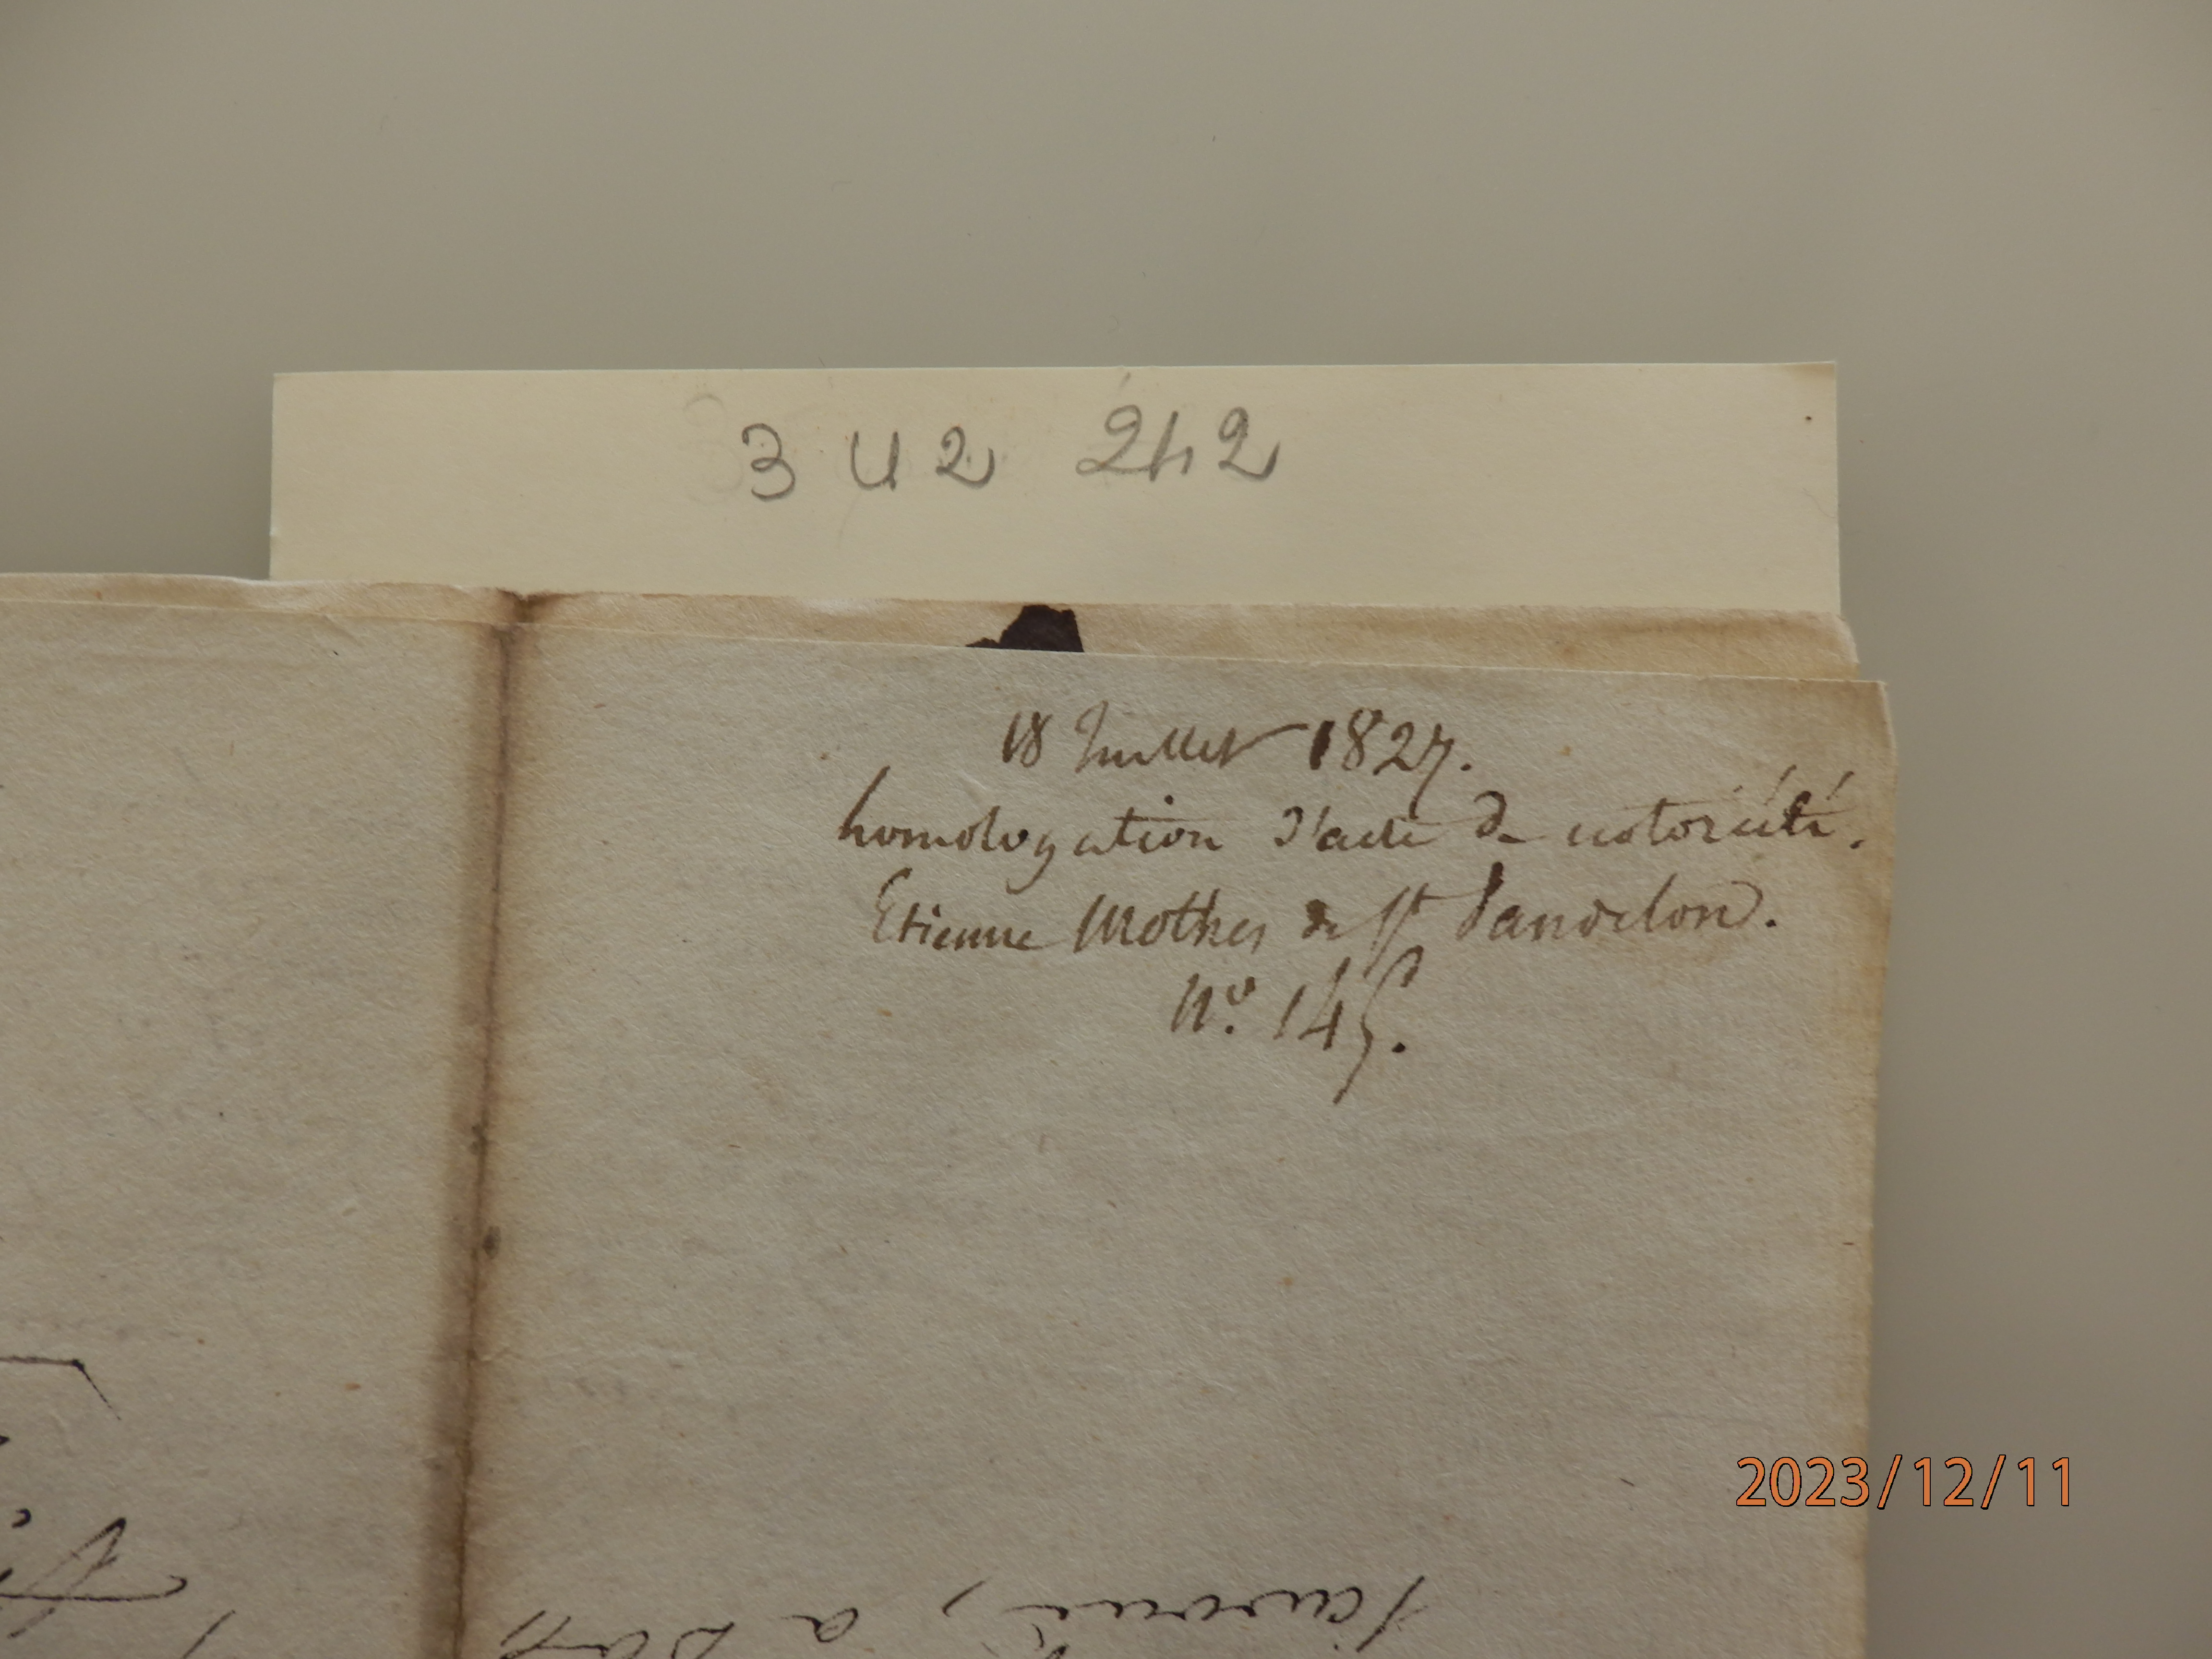 3 U 2 242
18 Juillet 1827.
homologation d'acte de notoriété.
Etienne Mothes de St Pandelon.
N.º 145.
2023/12/11